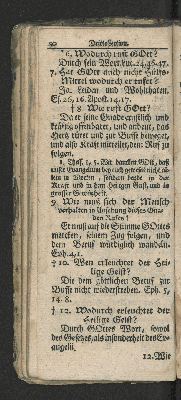 6. Wodurch ruft GOtt?
Durch sein Wort Luc. 24,46-47.
7. Hat GOtt auch nicht Hülfs-
Mittel wodurch er rufet?
Ja, Leiden und Wohlthaten.
Es. 26,16. Apost. 14.17.
† 8 Wie ruft GOtt?
Da er seine Gnade ernstlich und
kräftig offenbaret, und anbeut, das
Herz rühret und zur Busse beweget,
und alle Kraft mittheilet, dem Ruf zu
folgen.
1. Thes. 1, 5. Wir dancken GOtt, daß
unser Evangelium bey euch gewesen nicht al-
lein in Worten, sondern beyde in der
Kraft und in dem Heiligen Geist, und in
grosser Gewißheit.
9. Wie muß sich der Mensch
verhalten in Ansehung dieses Gna-
den Rufes?
Er muß auf die Stimme GOttes
mercken, seinem Zug folgen, und
dem Beruf würdiglich wandeln.
Eph. 4,1.
† 10. Wen erleuchtet der Hei-
lige Geist?
Die dem göttlichen Beruf zur
Busse nicht widerstreben. Eph. 5,
14. 8.
† 12. Wodurch erleuchtet der
Heilige Geist?
Durch GOttes Wort, sowol
des Gesetzes, als insonderheit des Ev-
angelii.
12. Wie